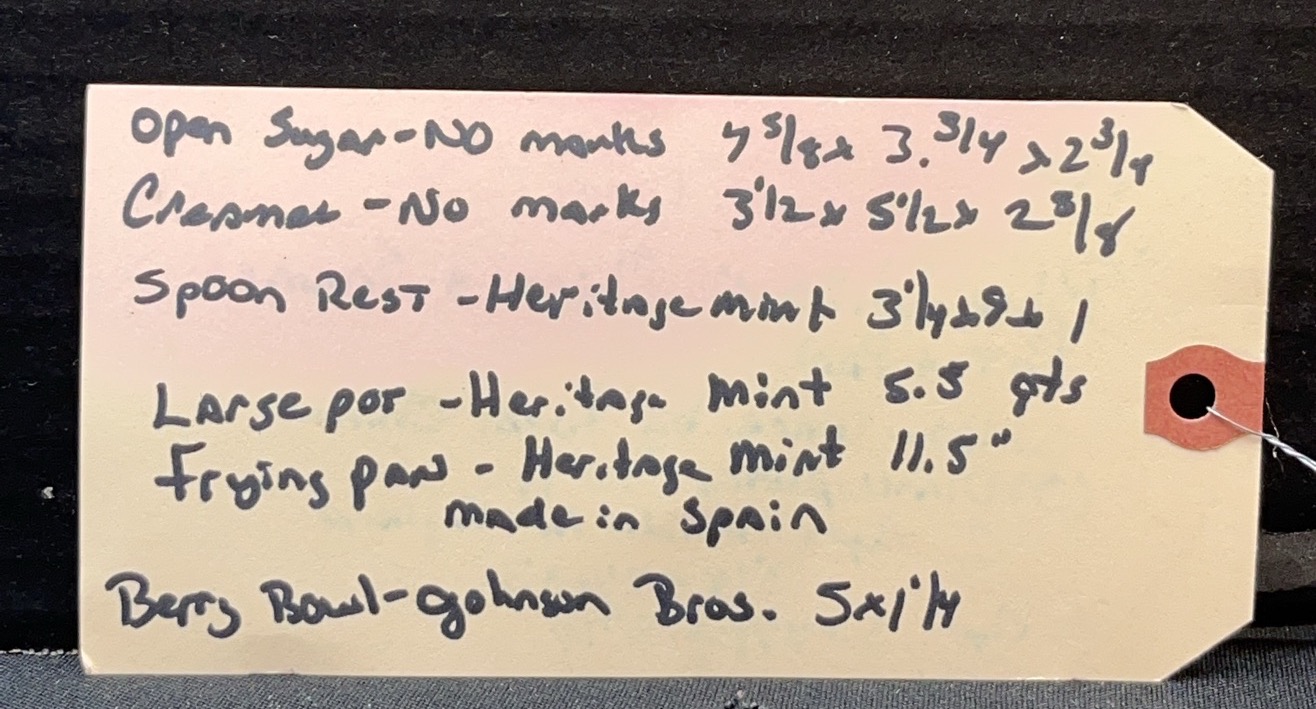 Open Sugar-No marks 4 5/8 x 3.3/4 x 2 3/4
Creamer - No marks 3 1/2 x 5 1/2 x 2 3/8
Spoon Rest - Heritage mint 3 1/4 x 9 x 1
Large pot - Heritage Mint 5.5 qts
Frying pan - Heritage Mint 11.5"
made in Spain
Berry Bowl - Johnson Bros. 5x1 1/4